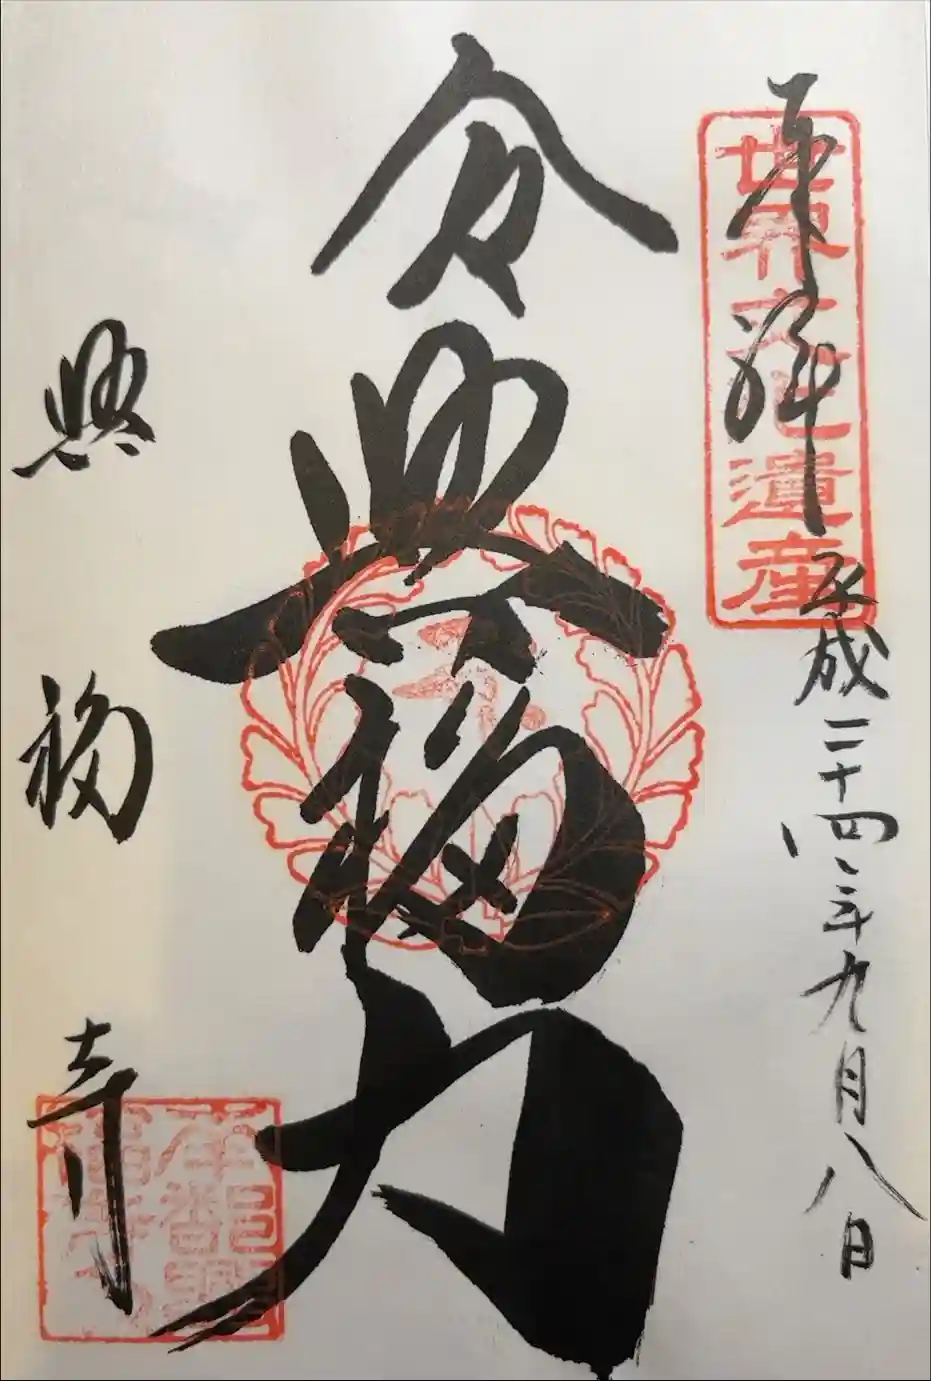 奉拝
平成二十四年九月八日
世界文化遺産
令興福力
興福寺